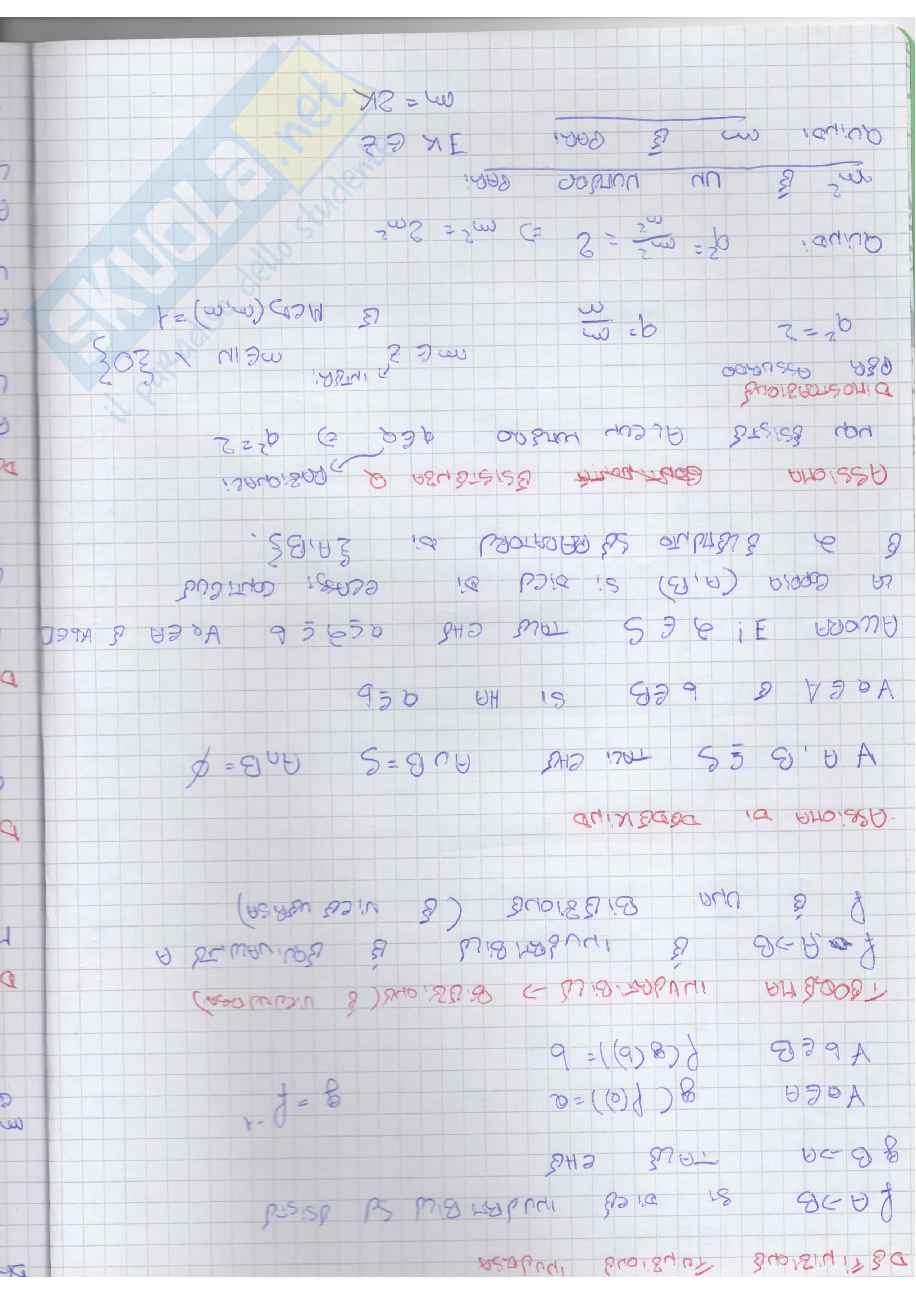 DEFINIZIONE FUNZIONE INVERSA
f A->B SI DICE INVERTIBILE SE ESISTE
g B->A TALE CHE
∀a∈A g(f(a))=a g = f⁻¹
∀b∈B f(g(b))=b
TEOREMA INVERTIBILE -> BIEZIONE (E VICEVERSA)
f A->B È INVERTIBILE È EQUIVALENTE A
f È UNA BIEZIONE (E VICE VERSA)
ASSIOMA DI DEDEKIND
∀ A, B ⊆ S TALI CHE A∪B=S A∩B=∅
∀a∈A E b∈B SI HA a≤b
ALLORA ∃! λ ∈ S TALE CHE a≤λ≤b ∀a∈A E ∀b∈B
LA COPPIA (A,B) SI DICE DI CLASSI CONTIGUE
E λ ELEMENTO SEPARATORE DI {A,B}.
ASSIOMA ESISTENZA Q RAZIONALI
NON ESISTE ALCUN NUMERO q∈Q => q²=2
DIMOSTRAZIONE
PER ASSURDO
q²=2 q=m/n m∈Z INTERI n∈IN \ {0} E MCD(m,n)=1
QUINDI q²=m²/n²=2 => m²=2n²
m² È UN NUMERO PARI
QUINDI m È PARI ∃K∈Z
m=2K
SKUOLA.net
il paradiso dello studente